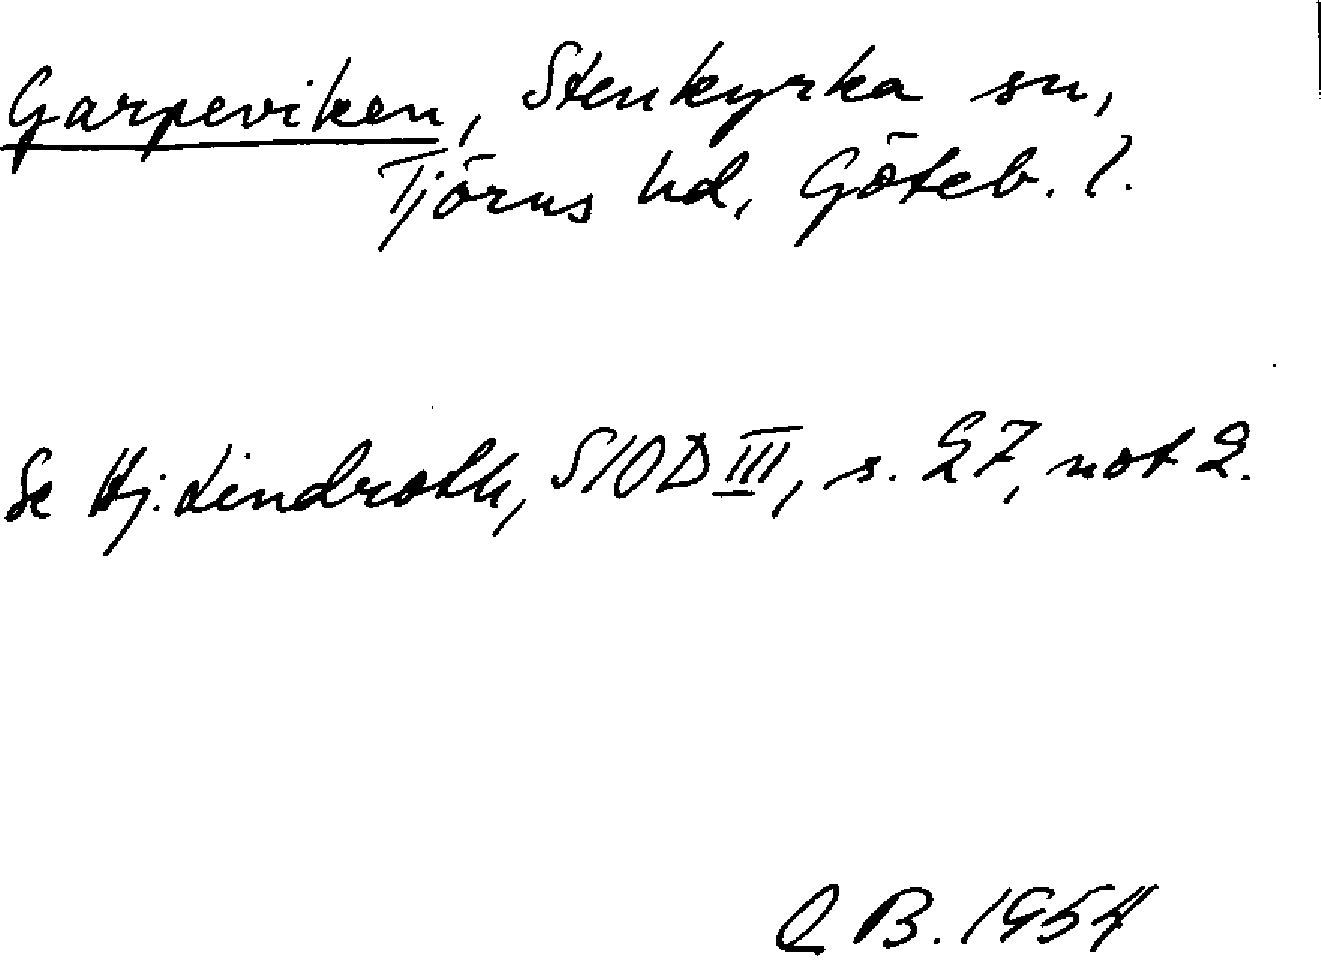 Garpeviken, Stenkyrka sn,
Tjörns hd, Göteb. l.
Se Hj. Lindroth, SIOD III, s. 27, not 2.
C B. 1954